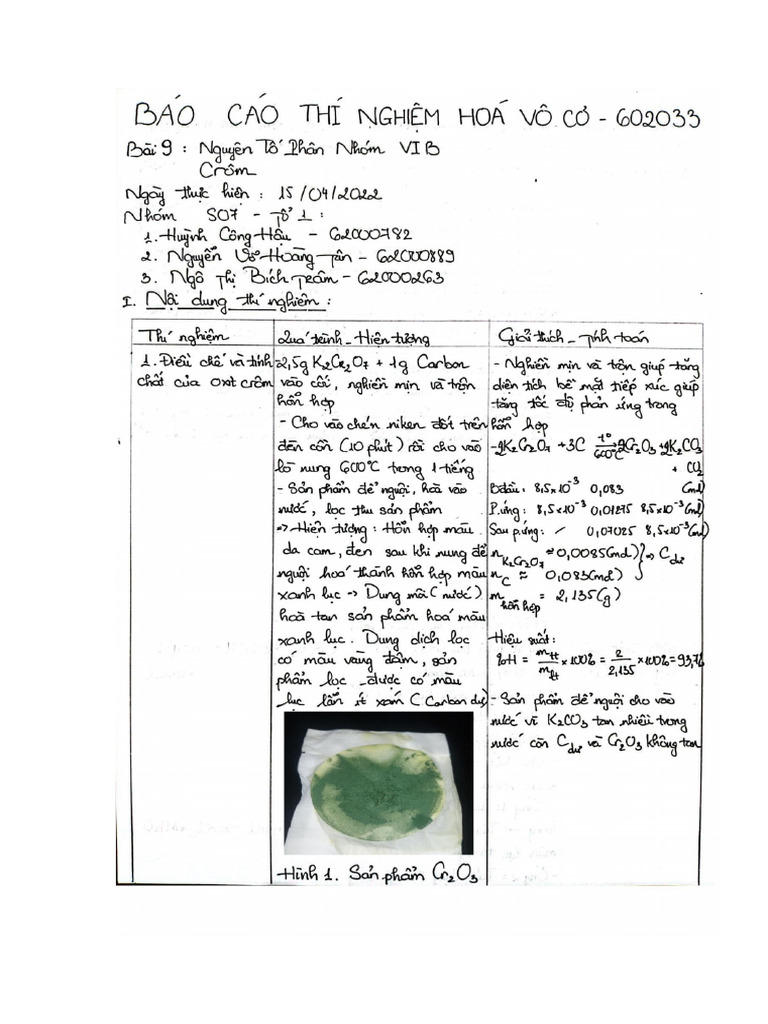 BÁO CÁO THÍ NGHIỆM HOÁ VÔ CƠ - 602033
Bài 9 : Nguyên Tố Phân Nhóm VI B
Crôm
Ngày thực hiện : 15/04/2022
Nhóm S07 - Tổ 1 :
1. Huỳnh Công Hậu - 62000782
2. Nguyễn Võ Hoàng Tân - 62000889
3. Ngô Thị Bích Trâm - 62000263
I. Nội dung thí nghiệm :
Thí nghiệm
1. Điều chế và tính
chất của oxit crôm
Quá trình - Hiện tượng
- 2,5g K₂Cr₂O₇ + 1g Carbon
vào cối, nghiền mịn và trộn
hỗn hợp
- Cho vào chén niken đốt trên
đèn cồn (10 phút) rồi cho vào
lò nung 600°C trong 1 tiếng
- Sản phẩm để nguội, hoà vào
nước, lọc thu sản phẩm
=> Hiện tượng : Hỗn hợp màu
da cam, đen sau khi nung để
nguội hoá thành hỗn hợp màu
xanh lục -> Dung môi (nước)
hoà tan sản phẩm hoá màu
xanh lục. Dung dịch lọc
có màu vàng đậm, sản
phẩm lọc được có màu
lục lẫn ít xám (Carbon dư)
Hình 1. Sản phẩm Cr₂O₃
Giải thích - Tính toán
- Nghiền mịn và trộn giúp tăng
diện tích bề mặt tiếp xúc giúp
tăng tốc độ phản ứng trong
hỗn hợp
- 2K₂Cr₂O₇ + 3C t° 600°C → 2Cr₂O₃ + 2K₂CO₃
+ CO₂
B.đầu : 8,5x10⁻³ 0,083 (mol)
P.ứng : 8,5x10⁻³ 0,01275 8,5x10⁻³ (mol)
Sau p.ứng : / 0,07025 8,5x10⁻³ (mol)
n K₂Cr₂O₇ ≈ 0,0085 (mol) } => C dư
n C ≈ 0,083 (mol)
m hỗn hợp = 2,135 (g)
Hiệu suất :
%H = mtt/mlt x 100% = 2/2,135 x 100% = 93,7%
- Sản phẩm để nguội cho vào
nước vì K₂CO₃ tan nhiều trong
nước còn C dư và Cr₂O₃ không tan